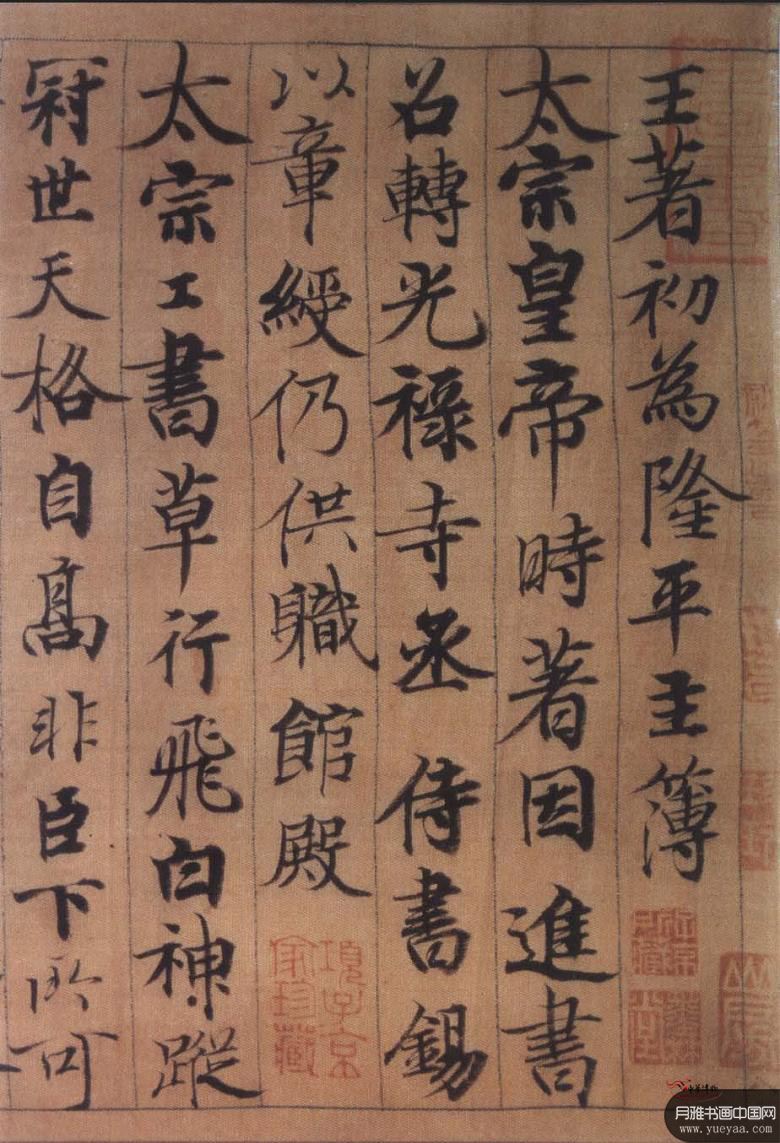 王著初為隆平主簿
太宗皇帝時著因進書
召轉光祿寺丞侍書錫
以章綬仍供職館殿
太宗工書草行飛白神蹤
冠世天格自高非臣下所可
項子京家珍藏
月雅书画中国网
www.yueyaa.com